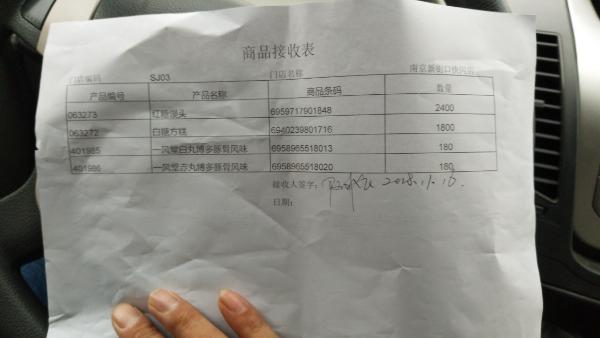 商品接收表
门店编码 SJ03 门店名称 南京新街口快闪店
产品编号 产品名称 商品条码 数量
063273 红糖馒头 6959717901848 2400
063272 白糖方糕 6940239801716 1800
401985 一风堂白丸博多豚骨风味 6958965518013 180
401986 一风堂赤丸博多豚骨风味 6958965518020 180
接收人签字： 2018.11.16.
日期：